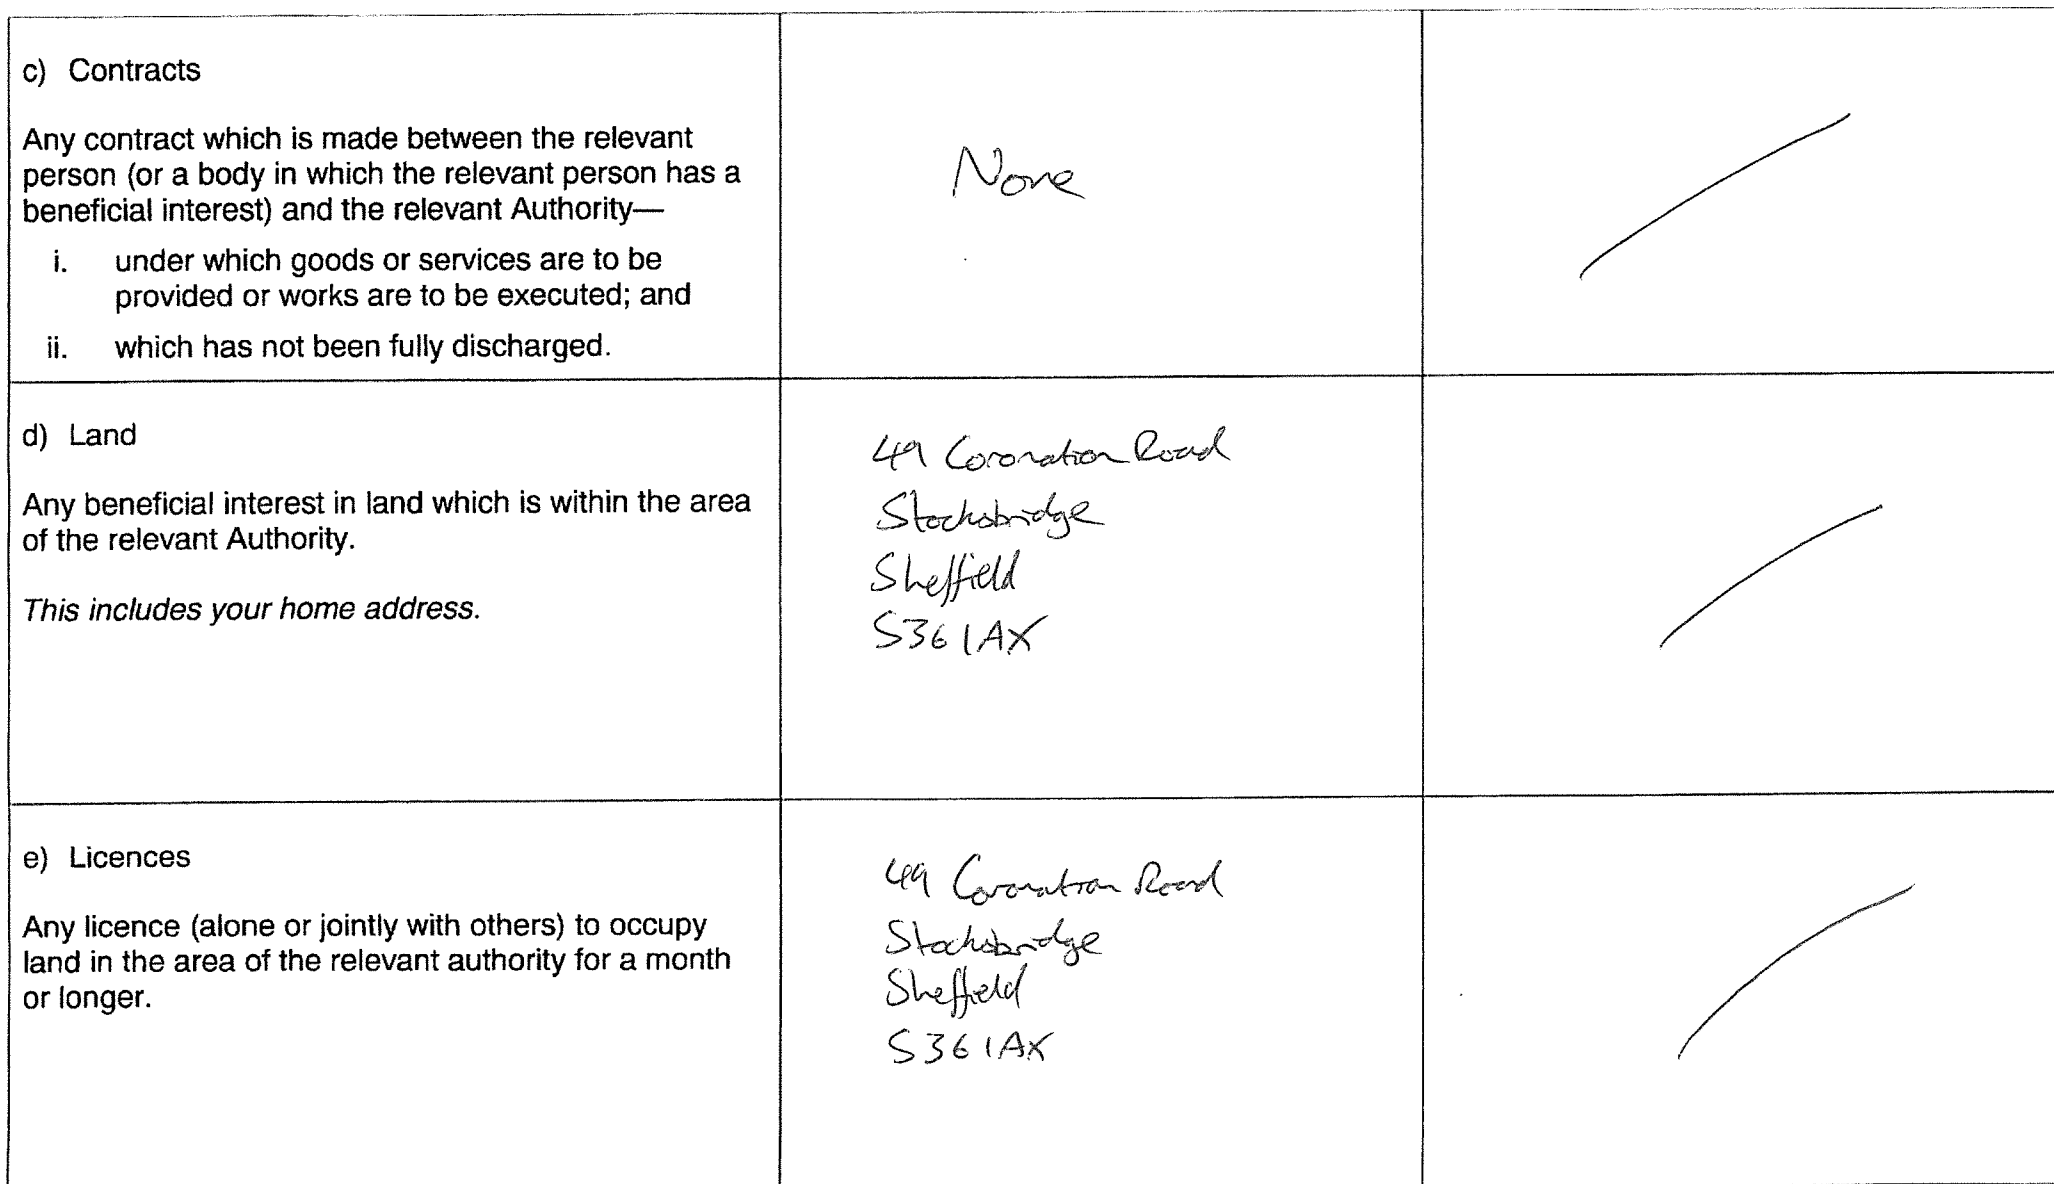 c) Contracts
Any contract which is made between the relevant
person (or a body in which the relevant person has a
beneficial interest) and the relevant Authority—
i. under which goods or services are to be
provided or works are to be executed; and
ii. which has not been fully discharged.
None
d) Land
Any beneficial interest in land which is within the area
of the relevant Authority.
This includes your home address.
49 Coronation Road
Stocksbridge
Sheffield
S36 1AX
e) Licences
Any licence (alone or jointly with others) to occupy
land in the area of the relevant authority for a month
or longer.
49 Coronation Road
Stocksbridge
Sheffield
S36 1AX